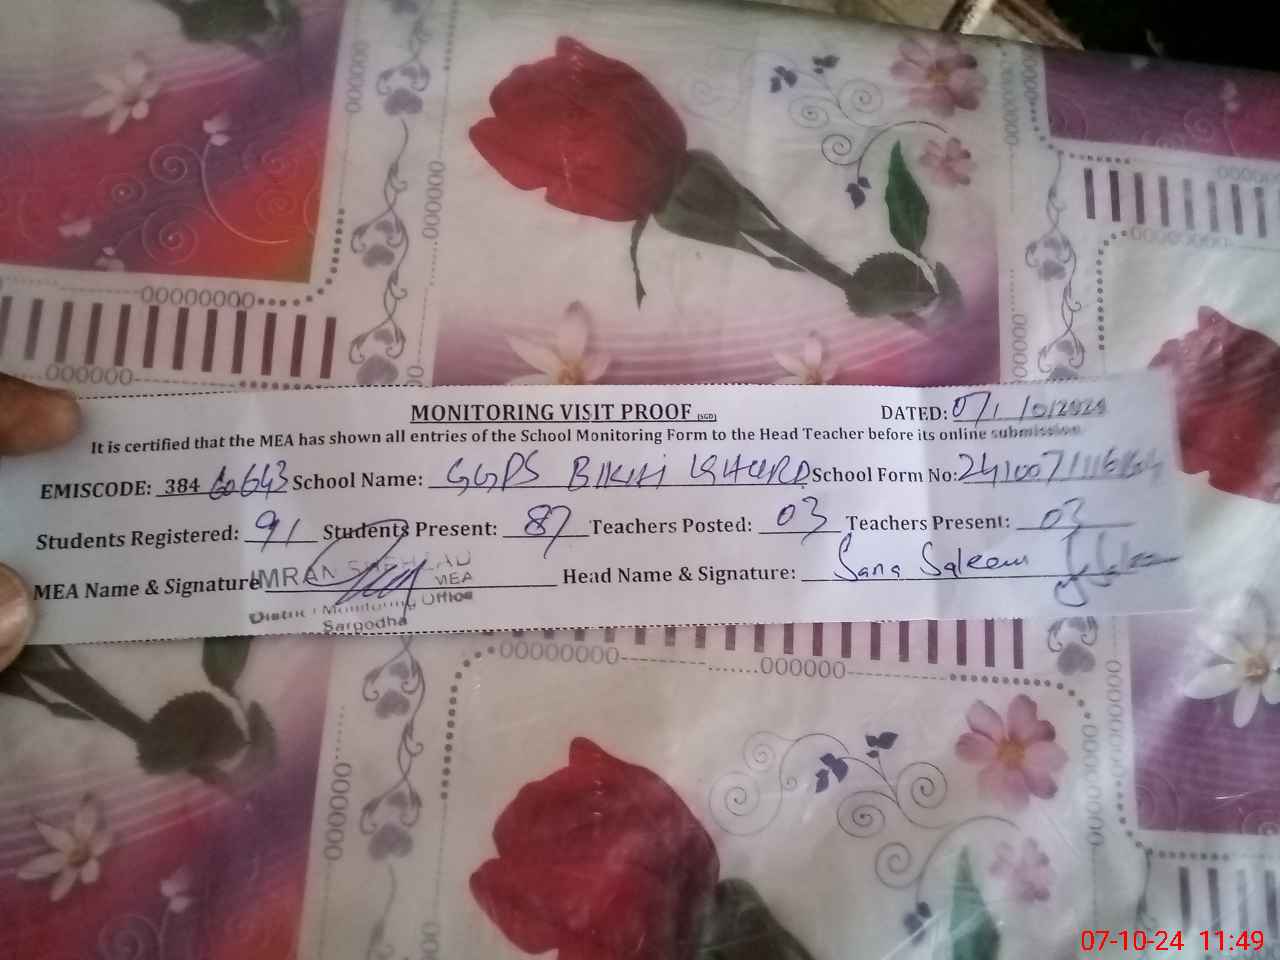 MONITORING VISIT PROOF (SGD) DATED: 07/10/2024
It is certified that the MEA has shown all entries of the School Monitoring Form to the Head Teacher before its online submission.
EMISCODE: 384 60643 School Name: GGPS BIKHI KHURD School Form No:
Students Registered: 91 Students Present: 87 Teachers Posted: 03 Teachers Present: 03
MEA Name & Signature IMRAN Head Name & Signature: Sana Saleem
MEA
District Monitoring Office
Sargodha
07-10-24 11:49